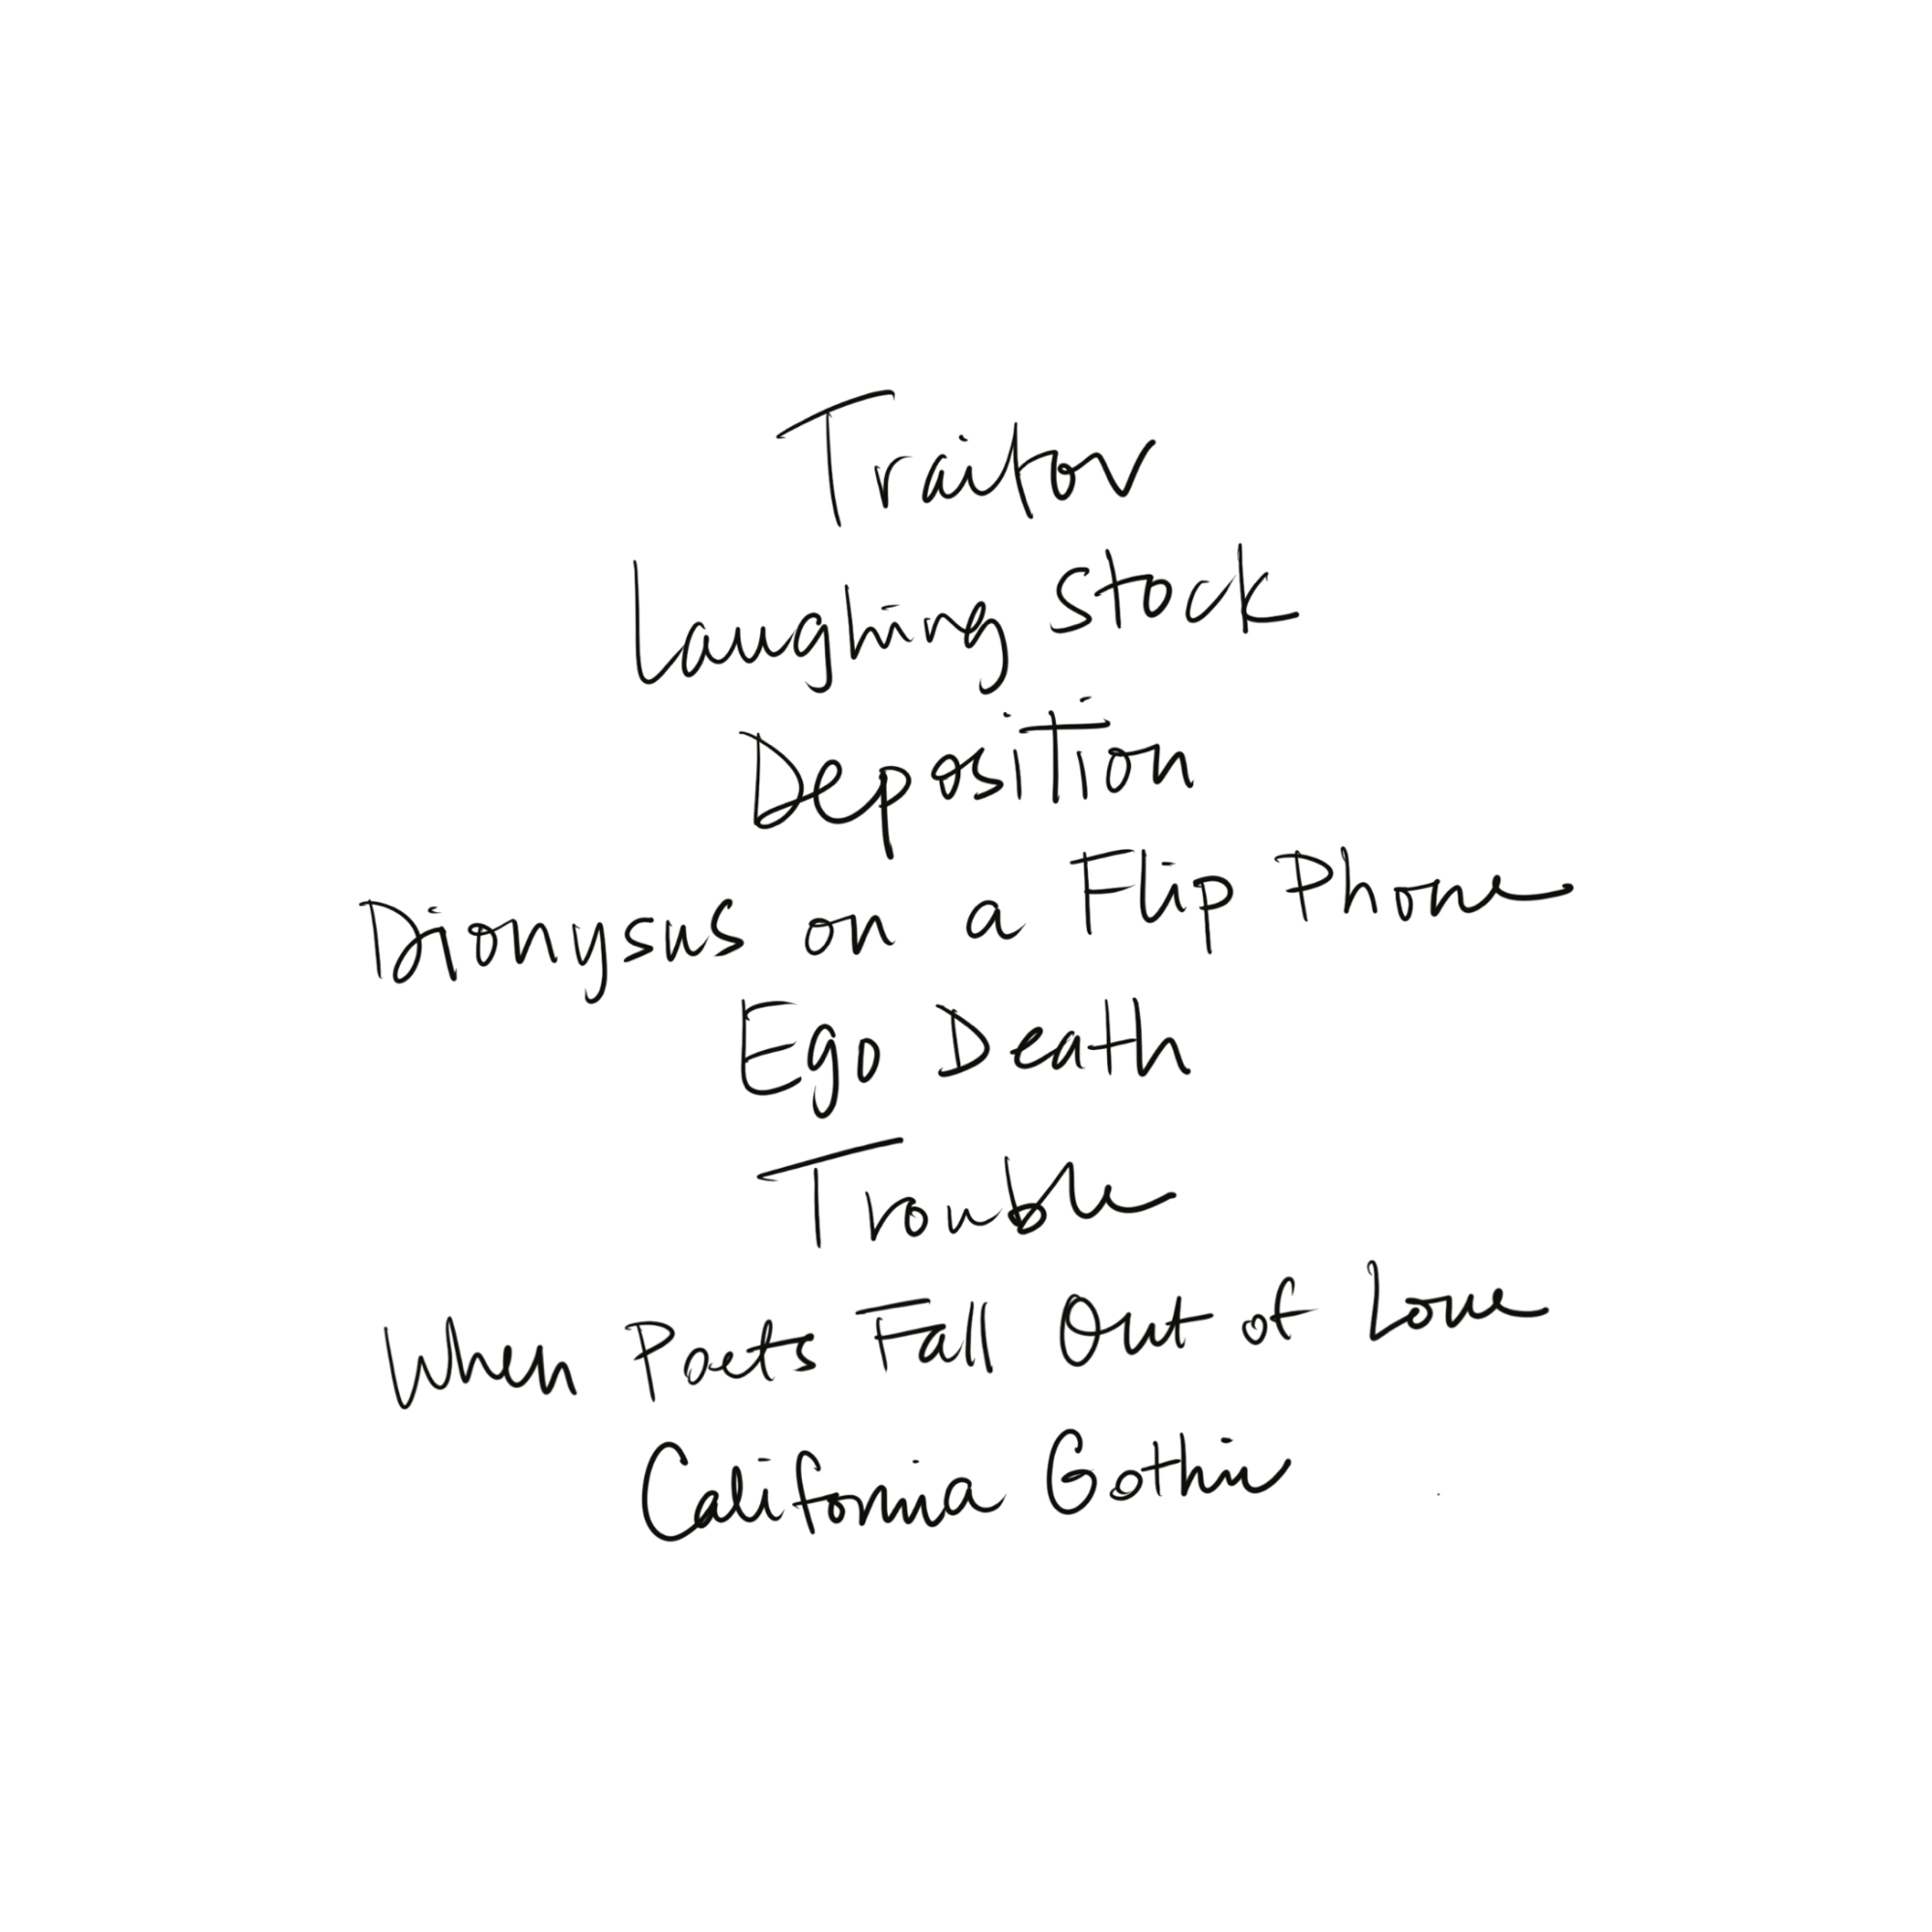 Traitor
Laughing Stock
Deposition
Dionysus on a Flip Phone
Ego Death
Trouble
When Poets Fall Out of Love
California Gothic